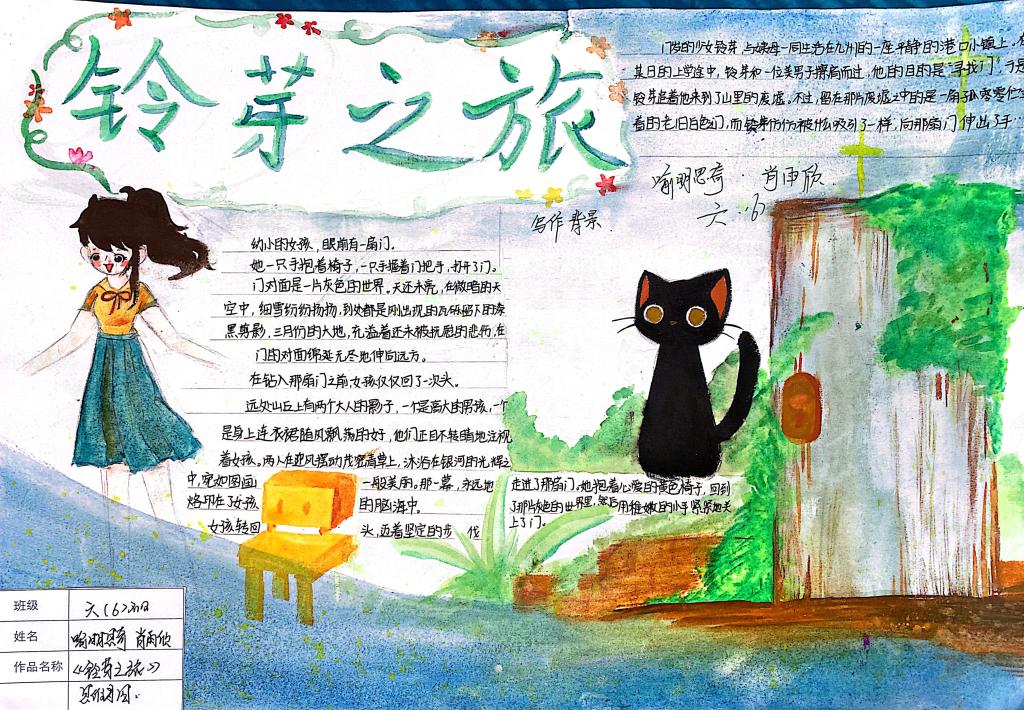 铃芽之旅
门岁的少女铃芽,与姨母一同生活在九州的一座平静的港口小镇上,在
某日的上学途中,铃芽和一位美男子擦肩而过,他的目的是“寻找门”。于是
铃芽追着他来到了山里的废墟,不过,留在那片废墟之中的是一扇孤零零伫立
着的老旧白色门,而铃芽仿仿被什么吸引了一样,向那扇门伸出了手…
喻明思奇·肖雨欣
六·(6)
写作背景.
幼小的女孩,眼前有一扇门。
她一只手抱着椅子,一只手握着门把手,打开了门。
门对面是一片灰色的世界。天还未亮,在微暗的天
空中,细雪纷纷扬扬,到处都是刚出现的瓦砾留下的漆
黑剪影,三月份的大地,充溢着还未被抚慰的悲伤,在
门的对面绵延无尽地伸向远方。
在钻入那扇门之前女孩仅仅回了一次头。
远处山丘上有两个大人的影子,一个是高大的男孩,一个
是身上连衣裙随风飘荡的女子,他们正目不转睛地注视
着女孩。两人在迎风摆动茂密高草上,沐浴在银河的光辉之
中,宛如图画一般美丽。那一幕,永远地
烙印在女孩的脑海中。
女孩转回头,迈着坚定的步伐
走进了那扇门。她抱着心爱的黄色椅子,回到
了那片褪色的世界里,然后用稚嫩的小手紧紧地关
上了门。
班级 六(6)班
姓名 喻明思奇 肖雨欣
作品名称 《铃芽之旅》